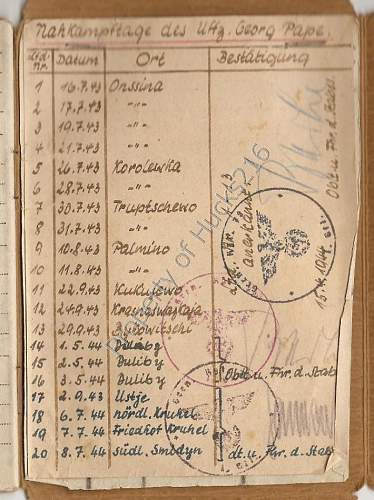 Nahkampftage des Uffz. Georg Pape.
Lfd. Nr. Datum Ort Bestätigung
1 16.7.43 Onssina
2 17.7.43 -"-
3 19.7.43 -"-
4 21.7.43 -"-
5 26.7.43 Korolewka
6 28.7.43 -"-
7 30.7.43 Truptschewo
8 31.7.43 -"-
9 10.8.43 Palmino
10 11.8.43 -"-
11 22.9.43 Kukujewo
12 24.9.43
13 29.9.43
14 1.5.44 Duliby
15 2.5.44 Duliby
16 3.5.44 Duliby
17 2.9.43 Ustje
18 6.7.44 nördl. Kruhel
19 7.7.44 Friedhof Kruhel
20 8.7.44 südl. Smidyn
anerkannt.
15.4.1944
Oblt. u. Fhr. d. Stabs
lt. u. Fhr. d. Stabs
Property of Huck52-16